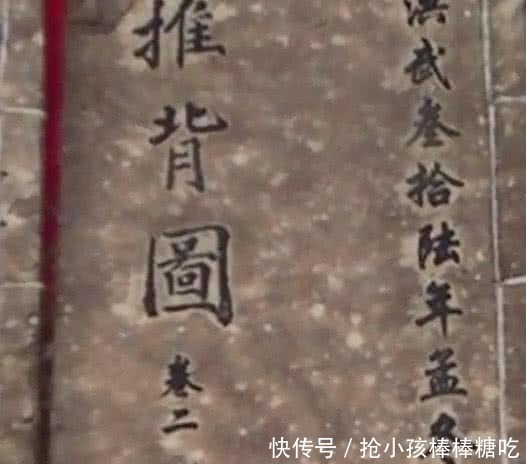 洪武叁拾陸年孟
推背圖
卷二
快传号 / 抢小孩棒棒糖吃